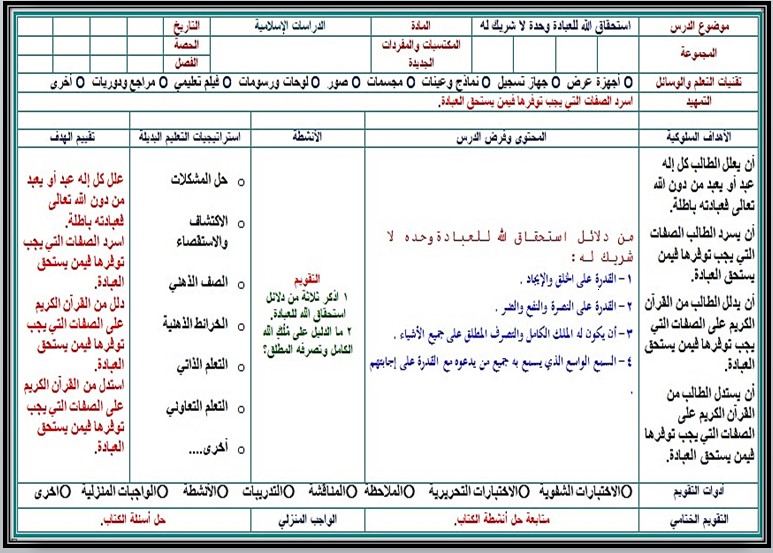 موضوع الدرس استحقاق الله للعبادة وحدة لا شريك له المادة الدراسات الإسلامية التاريخ
المجموعة المكتسبات والمفردات الجديدة الحصة
الفصل
تقنيات التعلم والوسائل O أجهزة عرض O جهاز تسجيل O نماذج وعينات O مجسمات O صور O لوحات ورسومات O فيلم تعليمي O مراجع ودوريات O أخرى
التمهيد اسرد الصفات التي يجب توفرها فيمن يستحق العبادة.
الأهداف السلوكية المحتوى وفرض الدرس الأنشطة استراتيجيات التعليم البديلة تقييم الهدف
أن يعلل الطالب كل إله
عبد أو يعبد من دون الله
تعالى فعبادته باطلة.
أن يسرد الطالب الصفات
التي يجب توفرها فيمن
يستحق العبادة.
أن يدلل الطالب من القرآن
الكريم على الصفات التي
يجب توفرها فيمن يستحق
العبادة.
أن يستدل الطالب من
القرآن الكريم على
الصفات التي يجب توفرها
فيمن يستحق العبادة.
من دلائل استحقاق الله للعبادة وحده لا
شريك له :
١- القدرة على الخلق والإيجاد .
٢- القدرة على النصرة والنفع والضر .
٣- أن يكون له الملك الكامل والتصرف المطلق على جميع الأشياء .
٤- السمع الواسع الذي يسمع به جميع من يدعوه مع القدرة على إجابتهم
.
التقويم
١ اذكر ثلاثة من دلائل
استحقاق الله للعبادة.
٢ ما الدليل على مُلْكِ الله
الكامل وتصرفه المطلق؟
o حل المشكلات
o الاكتشاف
والاستقصاء
o الصف الذهني
o الخرائط الذهنية
o التعلم الذاتي
o التعلم التعاوني
o أخرى....
علل كل إله عبد أو يعبد
من دون الله تعالى
فعبادته باطلة.
اسرد الصفات التي يجب
توفرها فيمن يستحق
العبادة.
دلل من القرآن الكريم
على الصفات التي يجب
توفرها فيمن يستحق
العبادة.
استدل من القرآن الكريم
على الصفات التي يجب
توفرها فيمن يستحق
العبادة.
أدوات التقويم Oالاختبارات الشفوية Oالاختبارات التحريرية Oالملاحظة Oالمناقشة Oالتدريبات Oالأنشطة Oالواجبات المنزلية Oاخرى
التقويم الختامي متابعة حل أنشطة الكتاب. الواجب المنزلي حل أسئلة الكتاب.